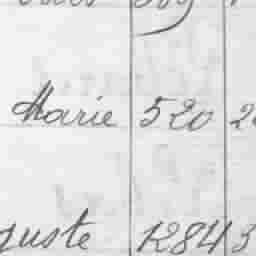 Marie 520 2
guste 1284 3